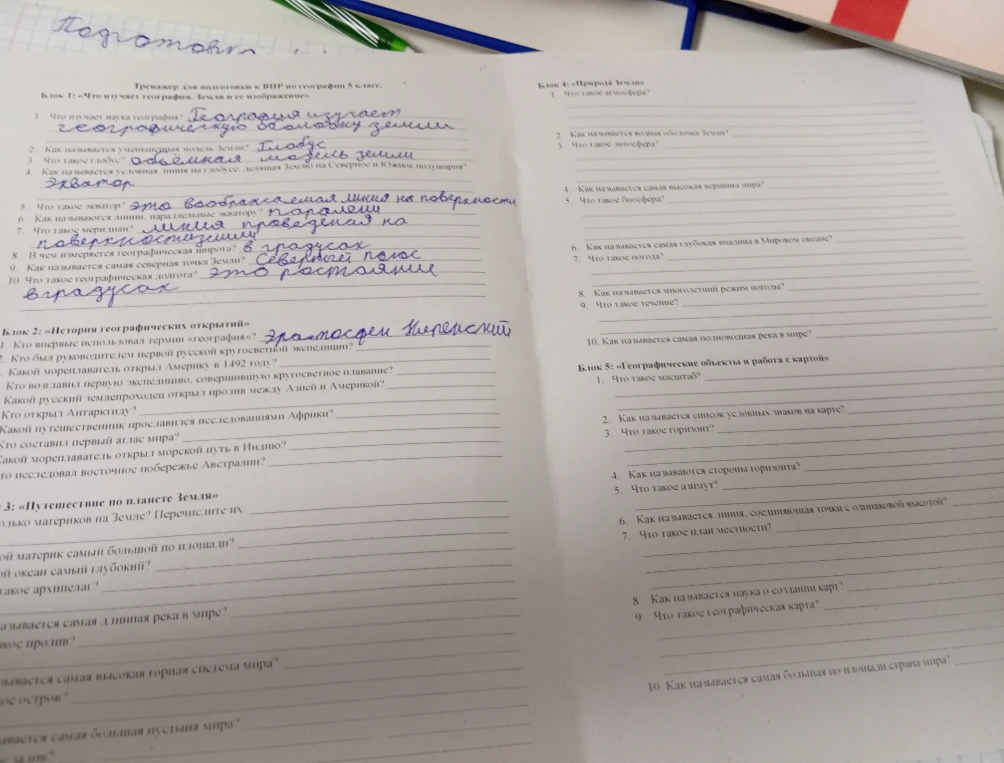 Подготовка ...
Тренажер для подготовки к ВПР по географии 5 класс.
Блок 1: «Что изучает география. Земля и ее изображение»
1 Что изучает наука география? География изучает
географическую оболовку земли
2. Как называется уменьшенная модель Земли? Глобус
3. Что такое глобус? объёмная модель земли
4 Как называется условная линия на глобусе, делящая Землю на Северное и Южное полушария?
экватор
5. Что такое экватор? это воображаемая линия на поверхности
6. Как называются линии, параллельные экватору? паралели
7. Что такое меридиан? линия проведеная на
поверхности земли
8. В чем измеряется географическая широта? в градусах
9. Как называется самая северная точка Земли? Северный полюс
10. Что такое географическая долгота? это ростояние
в градусах
Блок 2: «История географических открытий»
1 Кто впервые использовал термин «география»? Эратосфен Киренский
2. Кто был руководителем первой русской кругосветной экспедиции?
. Какой мореплаватель открыл Америку в 1492 году?
Кто возглавил первую экспедицию, совершившую кругосветное плавание?
Какой русский землепроходец открыл пролив между Азией и Америкой?
Кто открыл Антарктиду?
Какой путешественник прославился исследованиями Африки?
Кто составил первый атлас мира?
Какой мореплаватель открыл морской путь в Индию?
то исследовал восточное побережье Австралии?
3: «Путешествие по планете Земля»
олько материков на Земле? Перечислите их
ой материк самый большой по площади?
ой океан самый глубокий?
такое архипелаг?
азывается самая длинная река в мире?
акое пролив?
зывается самая высокая горная система мира?
ое остров?
ывается самая большая пустыня мира?
е залив?
Блок 4: «Природа Земли»
1. Что такое атмосфера?
2. Как называется водная оболочка Земли?
3. Что такое литосфера?
4. Как называется самая высокая вершина мира?
5. Что такое биосфера?
6. Как называется самая глубокая впадина в Мировом океане?
7. Что такое погода?
8. Как называется многолетний режим погоды?
9. Что такое течение?
10. Как называется самая полноводная река в мире?
Блок 5: «Географические объекты и работа с картой»
1. Что такое масштаб?
2. Как называется список условных знаков на карте?
3. Что такое горизонт?
4. Как называются стороны горизонта?
5. Что такое азимут?
6. Как называется линия, соединяющая точки с одинаковой высотой?
7. Что такое план местности?
8. Как называется наука о создании карт?
9 Что такое географическая карта?
10. Как называется самая большая по площади страна мира?